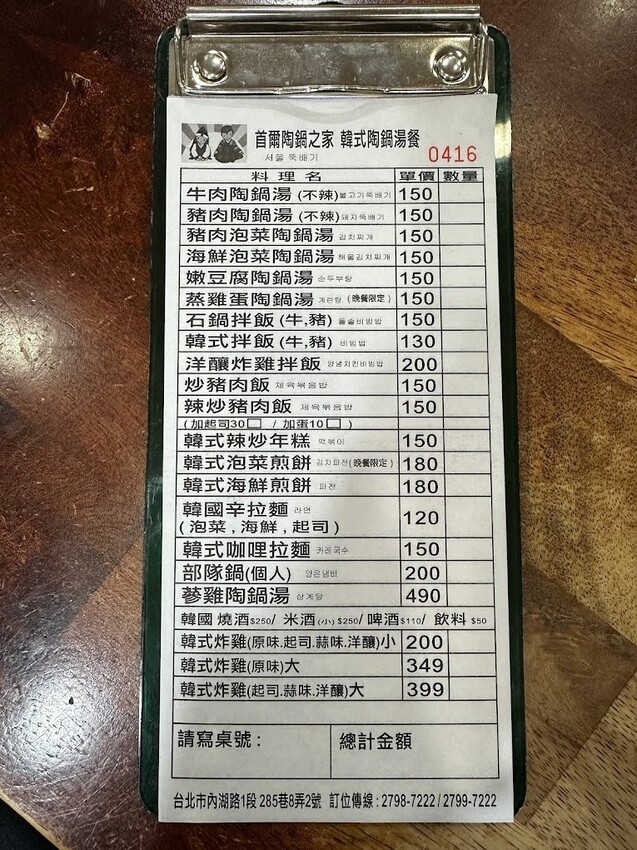 首爾陶鍋之家 韓式陶鍋湯餐
서울 뚝배기 0416
料理名 單價 數量
牛肉陶鍋湯 (不辣) 불고기뚝배기 150
豬肉陶鍋湯 (不辣) 돼지뚝배기 150
豬肉泡菜陶鍋湯 김치찌개 150
海鮮泡菜陶鍋湯 해물김치찌개 150
嫩豆腐陶鍋湯 순두부탕 150
蒸雞蛋陶鍋湯 계란탕 (晚餐限定) 150
石鍋拌飯 (牛,豬) 돌솥비빔밥 150
韓式拌飯 (牛,豬) 비빔밥 130
洋釀炸雞拌飯 양념치킨비빔밥 200
炒豬肉飯 제육볶음밥 150
辣炒豬肉飯 제육볶음밥 150
(加起司30□ / 加蛋10□ )
韓式辣炒年糕 떡볶이 150
韓式泡菜煎餅 김치파전 (晚餐限定) 180
韓式海鮮煎餅 파전 180
韓國辛拉麵 라면
(泡菜,海鮮,起司) 120
韓式咖哩拉麵 카레국수 150
部隊鍋(個人) 양은냄비 200
蔘雞陶鍋湯 삼계탕 490
韓國 燒酒$250/ 米酒(小)$250/ 啤酒$110/ 飲料$50
韓式炸雞(原味.起司.蒜味.洋釀)小 200
韓式炸雞(原味)大 349
韓式炸雞(起司.蒜味.洋釀)大 399
請寫桌號: 總計金額
台北市內湖路1段285巷8弄2號 訂位傳線:2798-7222/2799-7222